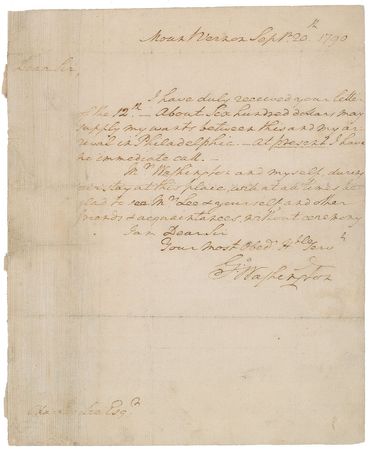 Mount Vernon Sept. 20th 1790
Dear Sir,
I have duly received your letter
of the 12th. – About Six hundred dollars may
supply my wants between this and my ar-
rival in Philadelphia. – At present I have
no immediate call. –
Mrs Washington and myself, during
our stay at this place, will at all times be
glad to see Mrs Lee & yourself, and other
friends & acquaintances, without ceremony
I am Dear Sir
Your Most Obedt Hble Servt
Go: Washington
Charles Lee Esqr